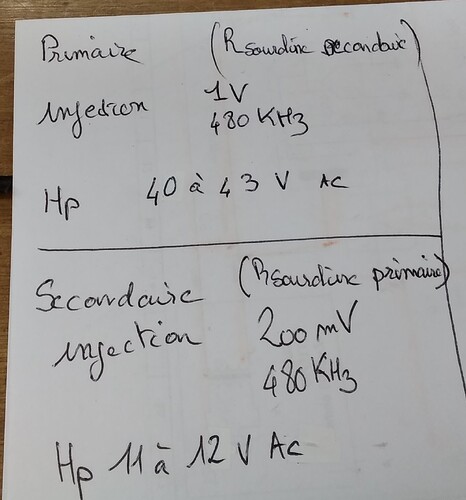 Primaire (R sourdine secondaire)
injection 1V
480 KHz
Hp 40 à 43 V AC
Secondaire (R sourdine primaire)
injection 200 mV
480 KHz
Hp 11 à 12 V AC